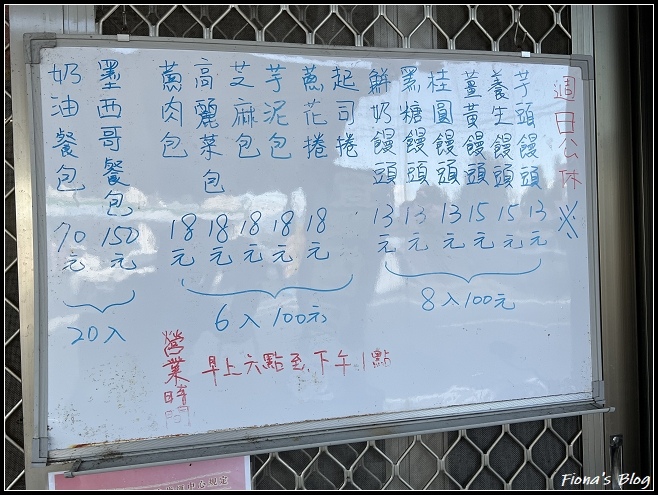 週日公休 ※
芋頭饅頭 13元
養生饅頭 15元
薑黃饅頭 15元
桂圓饅頭 13元
黑糖饅頭 13元
鮮奶饅頭 13元
8入100元
起司捲
蔥花捲 18元
芋泥包 18元
芝麻包 18元
高麗菜包 18元
蔥肉包 18元
6入100元
墨西哥餐包 150元
奶油餐包 70元
20入
營業時間 早上六點至下午1點
Fiona's Blog